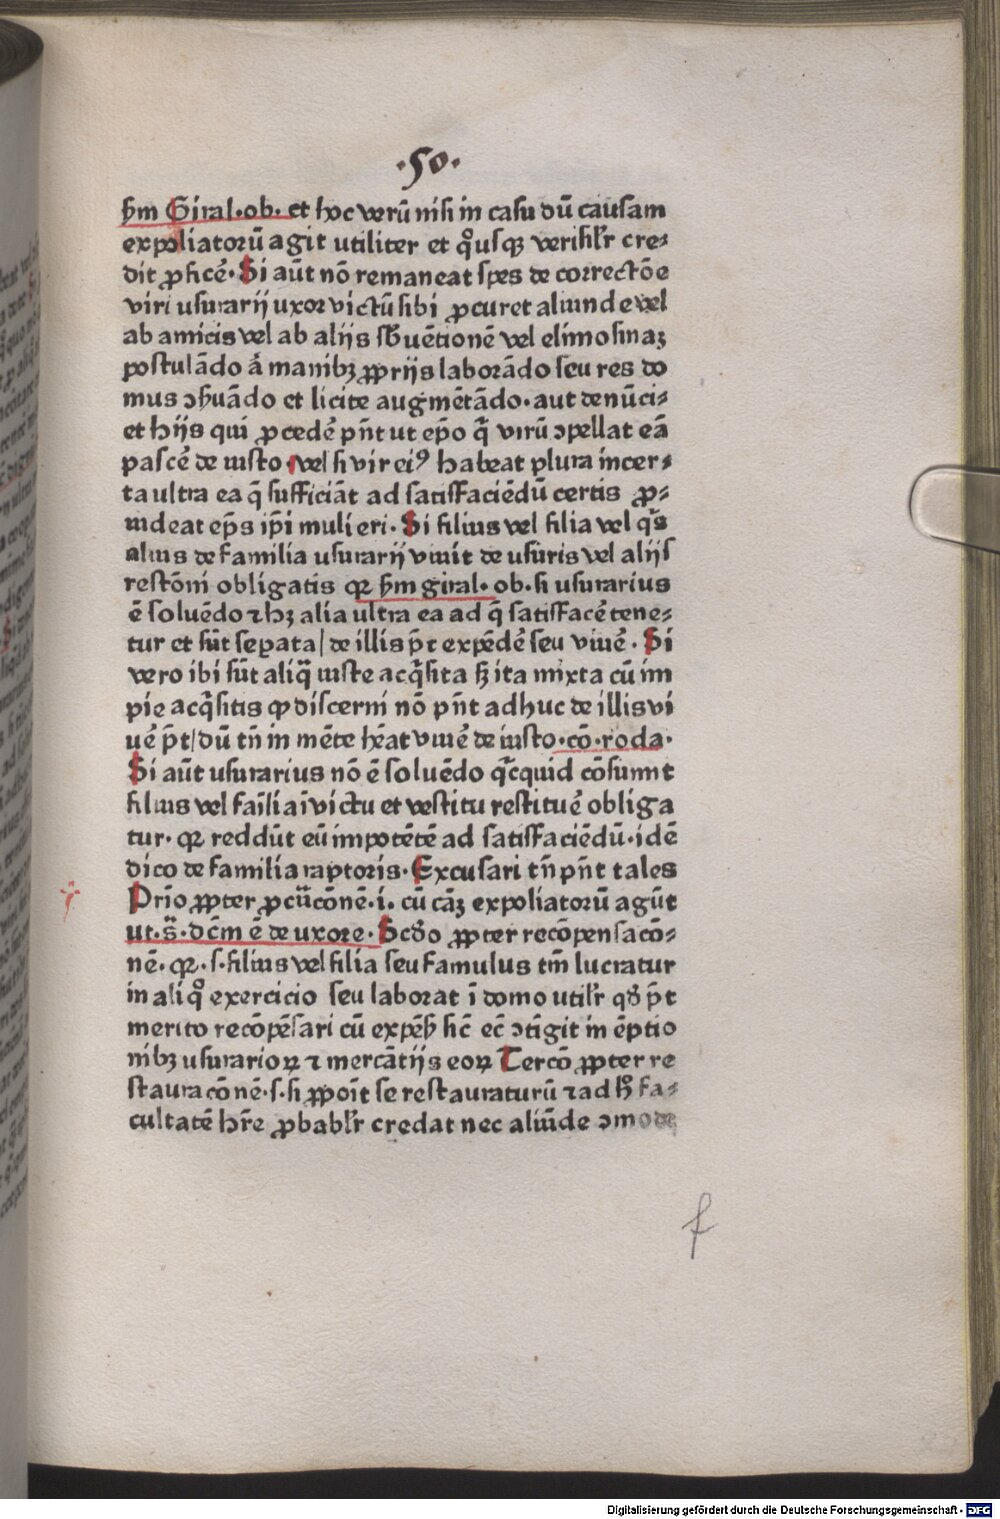 ·50·
ẜm Giral·ob· et hoc verū nisi in casu dū causam
expoliatorū agit utiliter et qͦusqꝫ verisil'r cre⸗
dit ꝓficē· Si aūt nō remaneat spes de correctōe
viri usurarij uxor victū sibi ꝓcuret aliunde vel
ab amicis vel ab alijs sb̄uētionē vel elimosinaꝫ
postulādo aū manibꝫ ꝓprijs laborādo seu res do
mus ꝯẜuādo et licite augmētādo· aut denūci⸗
et hijs qui ꝓcedē pn̄t ut epō q̄ virū ꝯpellat eā
pascē de iusto· vel si vir eiꝰ habeat plura incer⸗
ta ultra ea q̄ sufficiāt ad satisfaciēdū certis ꝓ⸗
uideat ep̄s ip̄i mulieri· Si filius vel filia vel qͥs
alius de familia usurarij viuit de usuris vel alijs
restōni obligatis qꝛ ẜm giral· ob· si usurarius
ē soluēdo ⁊ hꝫ alia ultra ea ad q̄ satisfacē tene⸗
tur et sūt seꝑata / de illis p̄t expēdē seu viuē· Si
vero ibi sūt aliq̄ iuste acqͥsita sꝫ ita mixta cū im
pie acqͥsitis ꝙ discerni nō pn̄t adhuc de illis vi
uē p̄t / dū tn̄ in mēte hēat viuē de iusto· cō· roda·
Si aūt usurarius nō ē soluēdo qͥcquid cōsumit
filius vel fail̄ia ī victu et vestitu restituē obliga
tur· qꝛ reddūt eū impotētē ad satisfaciēdū· idē
dico de familia raptoris· Excusari tn̄ pn̄t tales
Prīo ꝓpter ꝓcūcōnē· i· cū cāꝫ expoliatorū agūt
ut· s̄· dc̄m ē de uxore· Scd̓o ꝓpter recōpensacō⸗
nē· qꝛ· s· filius vel filia seu famulus tm̄ lucratur
in aliqͦ exercicio seu laborat ī domo util'r qd̓ p̄t
merito recōpēsari cū expēẜ sic̄ ec̄ ꝯtīgit in ēptio
nibꝫ usurarioꝝ ⁊ mercātijs eoꝝ Tercō ꝓpter re
stauracōnē· s· si ꝓpoīt se restauraturū ⁊ ad hͦ fa⸗
cultatē hr̄e ꝓbabl'r credat nec aliūde ꝯmode
f
Digitalisierung gefördert durch die Deutsche Forschungsgemeinschaft - DFG